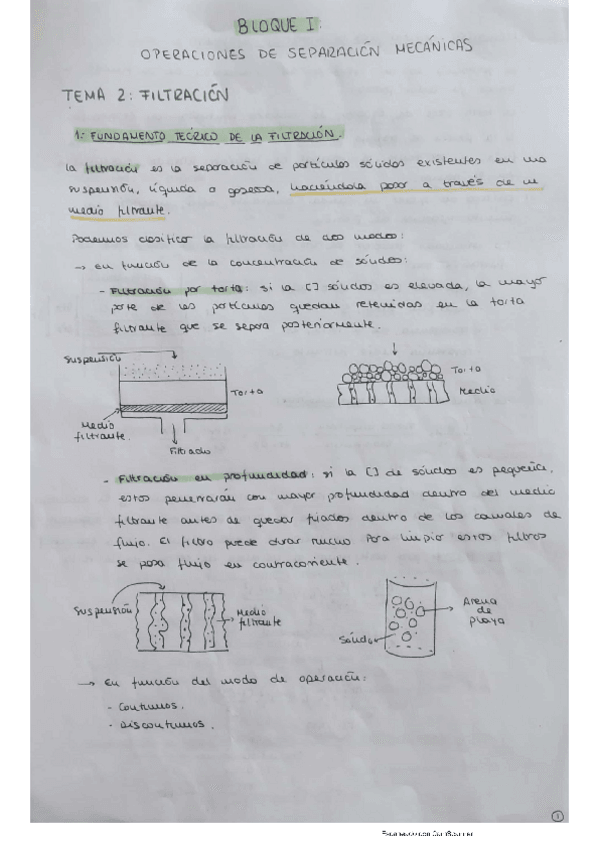 BLOQUE I:
OPERACIONES DE SEPARACIÓN MECÁNICAS
TEMA 2: FILTRACIÓN
1: FUNDAMENTO TEÓRICO DE LA FILTRACIÓN.
La filtración es la separación de partículas sólidas existentes en una
suspensión, líquida o gaseosa, haciéndola pasar a través de un
medio filtrante.
Podemos clasificar la filtración de dos modos:
→ en función de la concentración de sólidos:
- Filtración por torta: si la [] sólidos es elevada, la mayor
parte de las partículas quedan retenidas en la torta
filtrante que se separa posteriormente.
Suspensión
Torta
Medio
filtrante.
Filtrado
Torta
Medio
- Filtración en profundidad: si la [] de sólidos es pequeña,
estos penetrarán con mayor profundidad dentro del medio
filtrante antes de quedar fijados dentro de los canales de
flujo. El filtro puede durar mucho. Para limpiar estos filtros
se pasa flujo en contracorriente.
Suspensión
Medio
filtrante
Sólido
Arena
de
playa
→ En función del modo de operación:
- Continuos.
- Discontinuos.
1